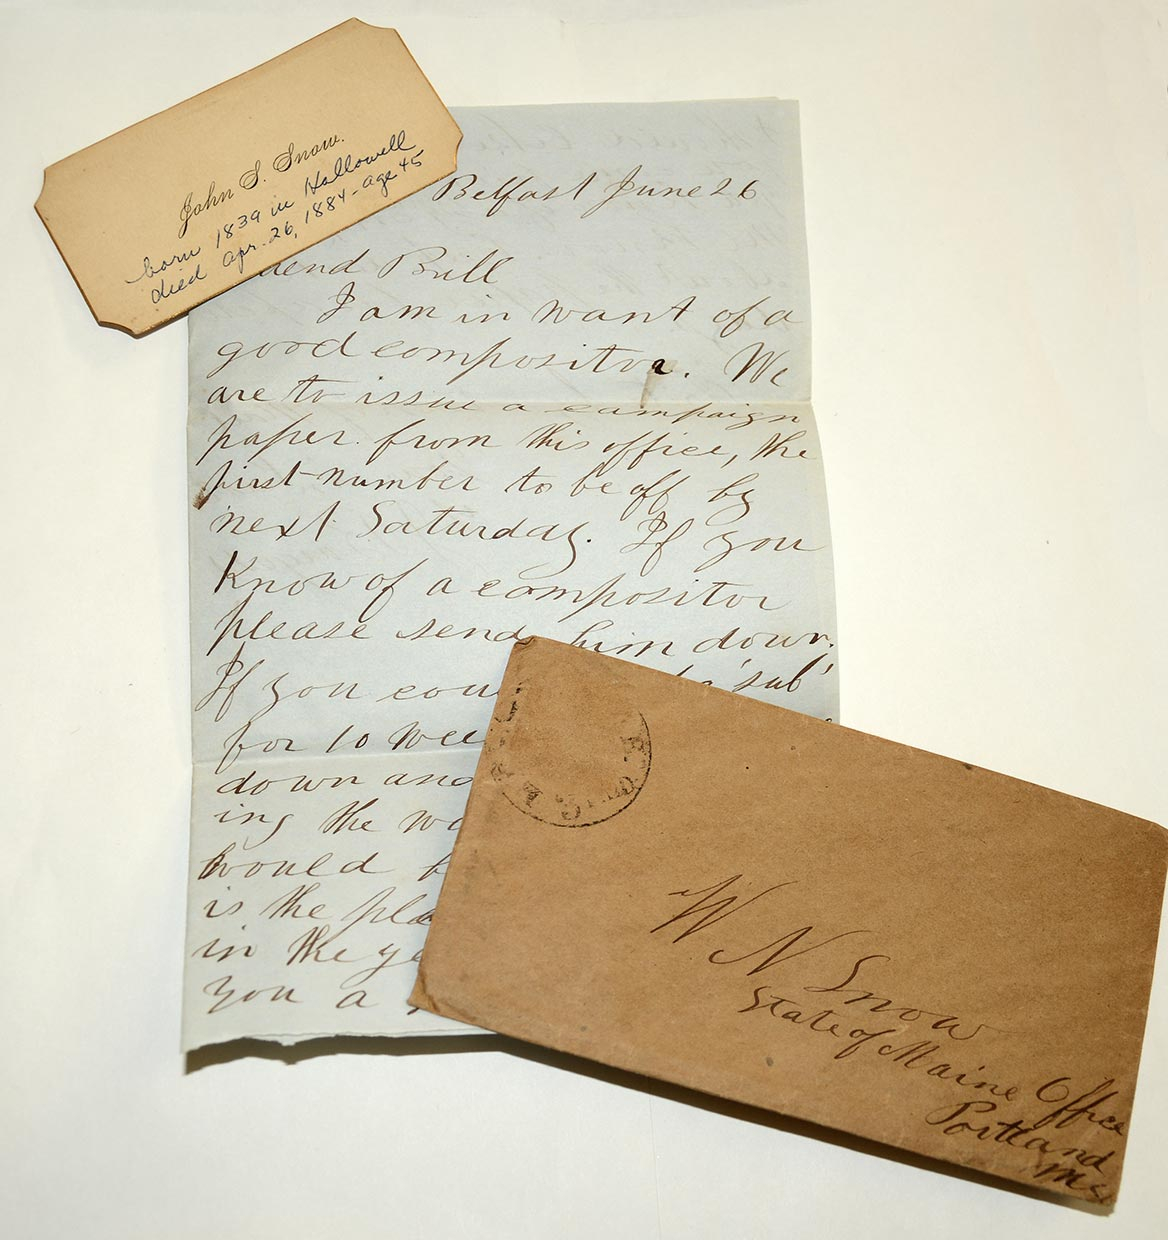 John S. Snow.
born 1839 in Hallowell
died Apr. 26, 1884 - age 45
Belfast June 26
Brill
I am in want of a
good compositor. We
are to issue a campaign
paper from this office, the
first number to be off by
next Saturday. If you
Know of a compositor
please send him down.
If you 'sub'
for 10
down and
ing the
would
is the
in the
you a
W N Snow
State of Maine Office
Portland
Me